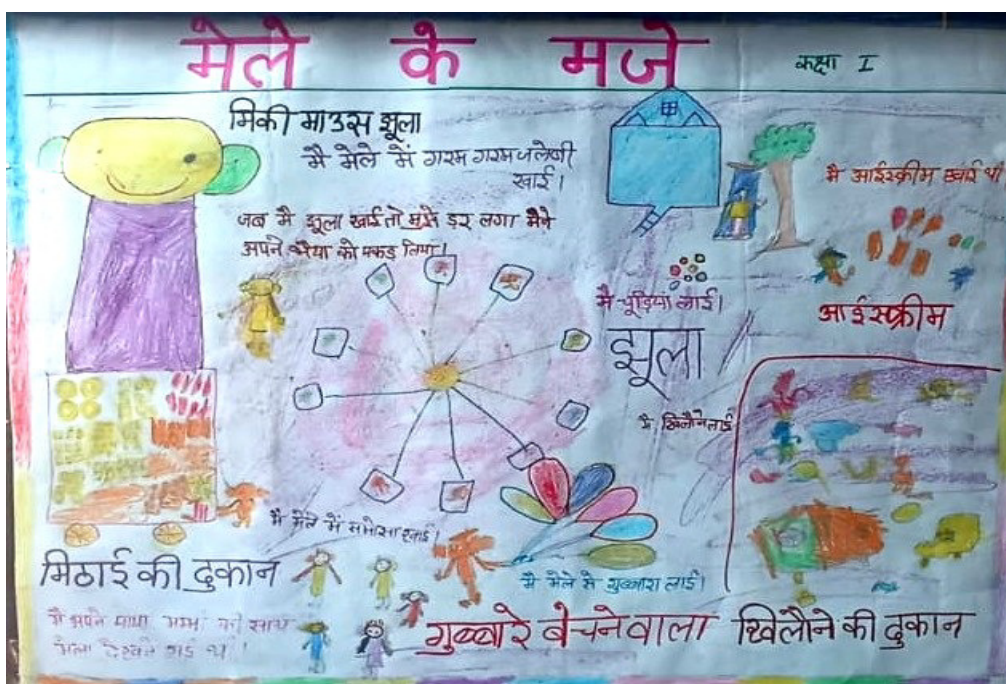 मेले के मजे
कक्षा I
मिकी माउस झूला
मै मेले में गरम गरम जलेबी
खाई।
जब मै झूला खाई तो मुझे डर लगा मैने
अपने भैया को पकड़ लिया।
मै आईस्क्रीम खाई थी
मै चूड़िया लाई।
झूला
आईस्क्रीम
मै खिलौने लाई
मै मेले में समोसा खाई।
मिठाई की दुकान
मै मेले से गुब्बारा लाई।
मै अपने पापा मम्मी के साथ
मेला देखने गई थी।
गुब्बारे बेचने वाला
खिलौने की दुकान